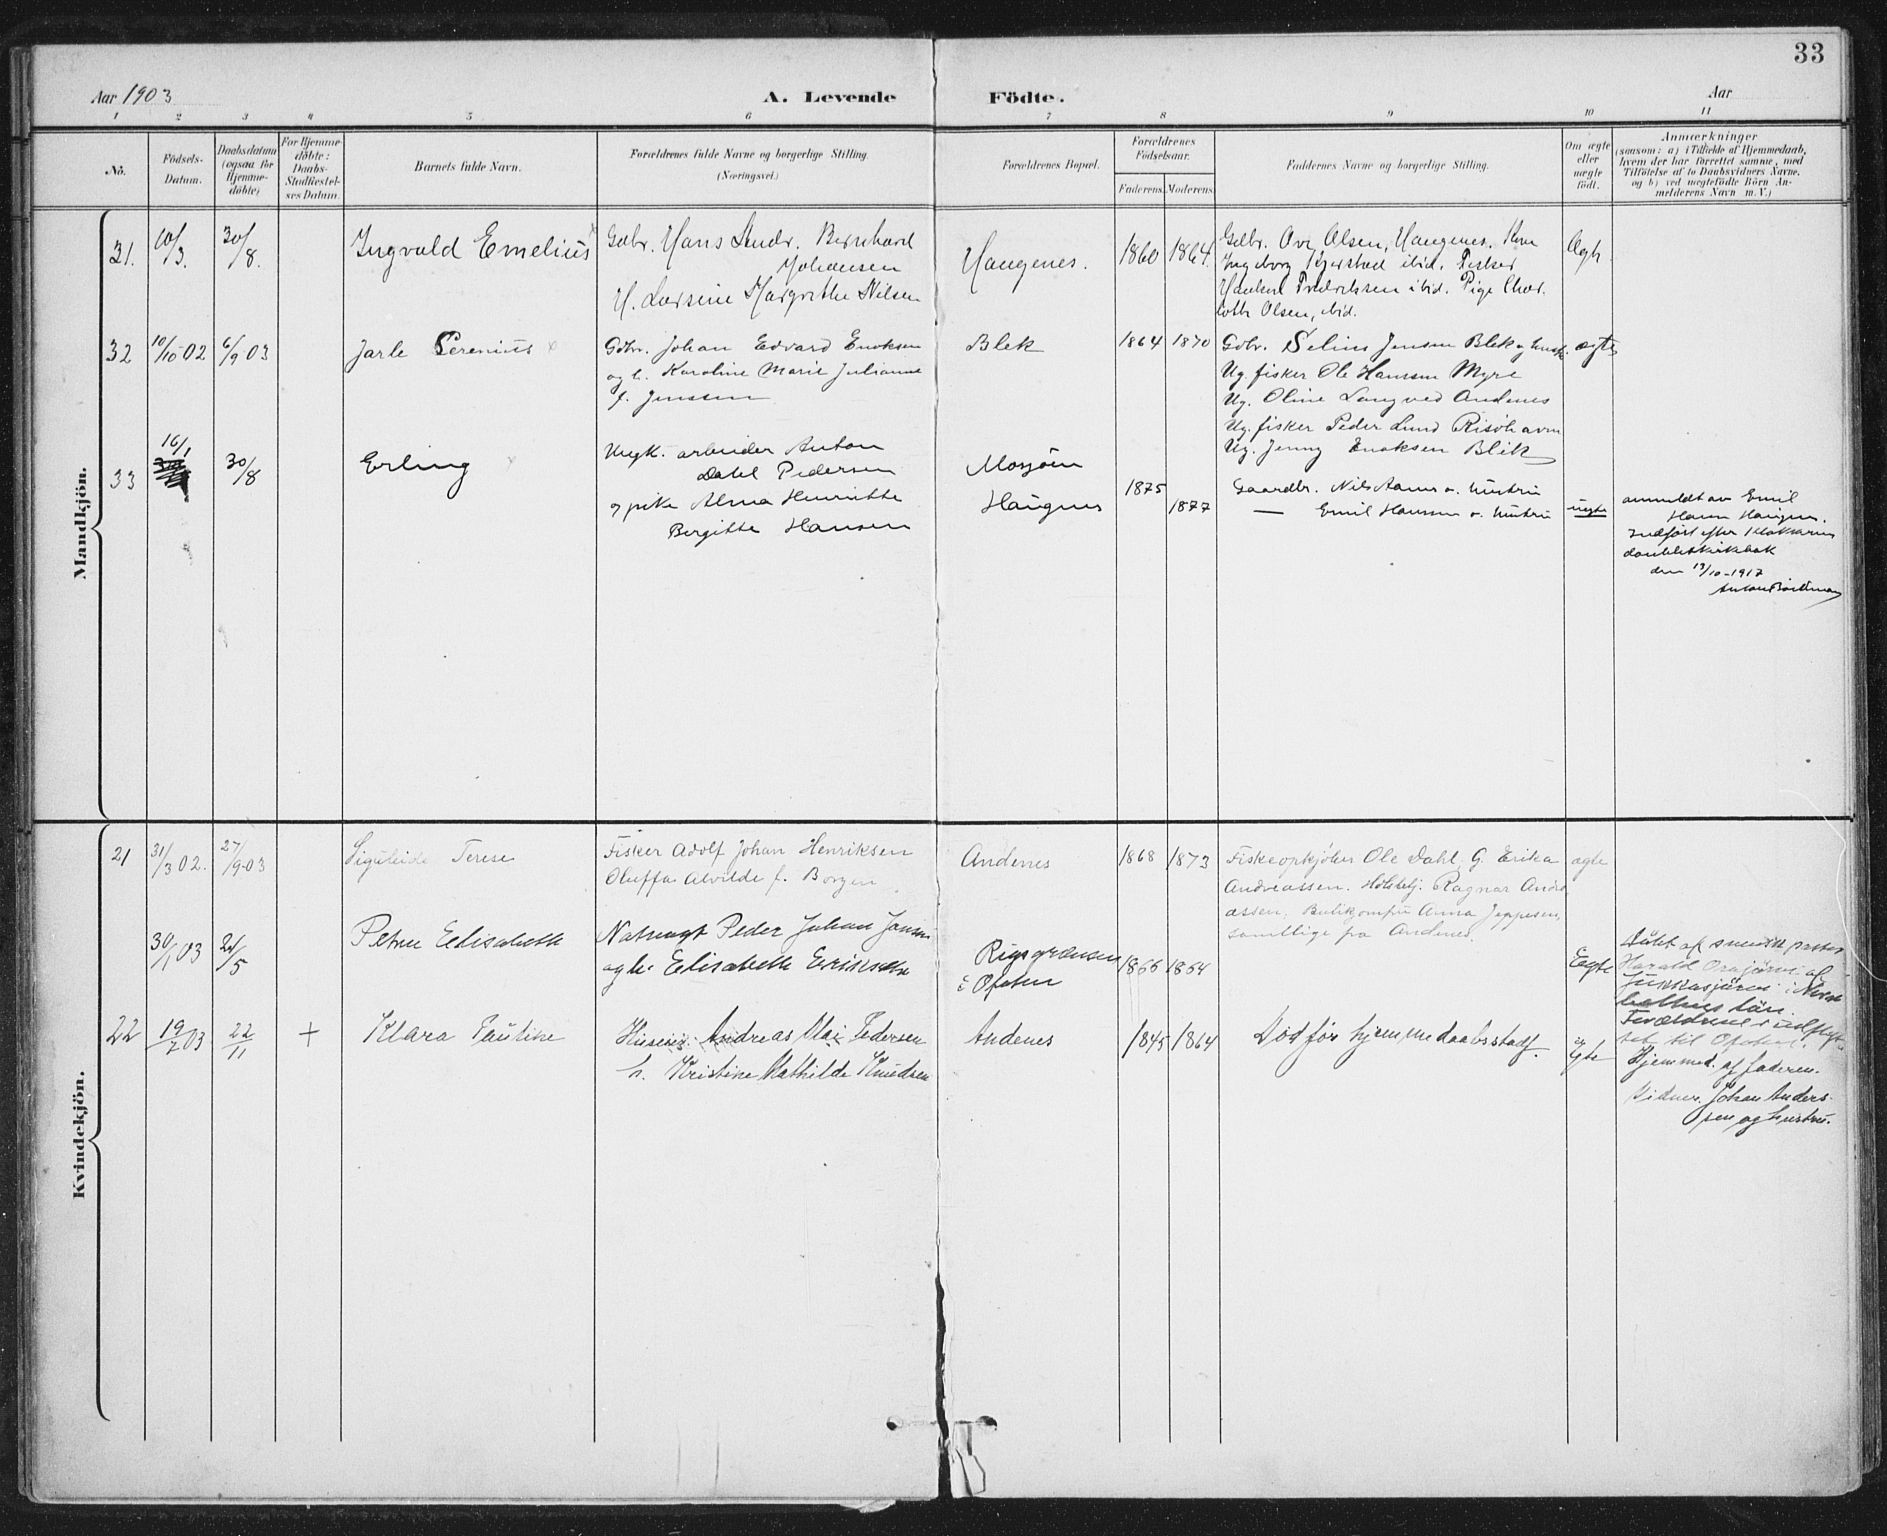 33
Aar 1903
A. Levende Födte.
Aar
1 2 3 4 5 6 7 8 9 10 11
No.
Födsels-
Datum.
Daabsdatum
(ogsaa for
Hjemme-
döbte)
For Hjemme-
döbte:
Daabs-
Stadfæstel-
ses Datum.
Barnets fulde Navn.
Forældrenes fulde Navne og borgerlige Stilling.
(Næringsvei.)
Forældrenes Bopæl.
Forældrenes
Födselsaar.
Faderens Moderens
Faddernes Navne og borgerlige Stilling.
Om ægte
eller
uægte
födt.
Anmærkninger
(saasom: a) i Tilfælde af Hjemmedaab,
hvem der har forrettet samme, med
Tilföielse af to Daabsvidners Navne,
og b) ved uægtefödte Börn An-
melderens Navn m. V.)
Mandkjön.
31.
10/3.
30/8.
Ingvald Emelius
Gdbr. Hans Andr. Bernhard
Johansen
H. Larsine Margrethe Nilsen
Haugenes.
1860 1864.
Gdbr. Ove Olsen, Haugenes. Kone
Ingeborg Kjerstad ibid. Fisker
Haakon Fredriksen ibid. Pige Char-
lotte Olsen, ibid.
Ægte
32
10/10-02
6/9 03
Jarle Serenius
Gdbr. Johan Edvard Enoksen
og h. Karoline Marie Julianne
f. Jenssen
Blek
1864 1870
Gdbr. Selius Jensen Blek og hustr.
Ug. fisker Ole Hanssen Myre
Ug. Oline Langved Andenes
Ug. fisker Peder Lund Risöhavn
Ug. Jenny Enoksen Blik
ægte
33
16/1
30/8
Erling
Ungk. arbeider Anton
Dahl Pedersen
og pike Alma Henriette
Bergitte Hansen
Mosjøen
Haugnes
1875
1877
Gaardbr. Nils Aanes o. hustru
— Emil Hanssen o. hustru
uegte
anmeldt av Emil
Hansen Haugnes.
Indført efter klokkerens
dublikatkirkebok
den 13/10-1917
Kvindekjön.
21
31/3 02.
27/9-03
Terese
Fisker Adolf Johan Henriksen
Oluffa Alvilde f. Borgen
Andenes
1868 1873
Fiskeopkjöber Ole Dahl. G. Erika
Andreassen. Ragnar Andre
assen. Anna Jeppesen,
samtlige fra Andenes.
ægte
30/1 03
21/5
Petra Elisabeth
Natvægt Peder Johan Jonsen
og h. Elisabeth Eriksdtr
Rigsgrænsen
i Ofoten
1866 1864
Egte
Döbt af svensk pastor
Harald
Jukkasjärvi i Norr
bottens län.
Forældrene udflyt
tet til Ofoten.
22
19/7 03
22/11
+
Klara Pauline
Andreas Mai Pedersen
h. Kristine Mathilde Knudsen
Andenes
1845 1864
Död för hjemmedaabsstadf.
Egte
Hjemmed. af faderen.
Vidner. Johan Anders-
sen og hustru.